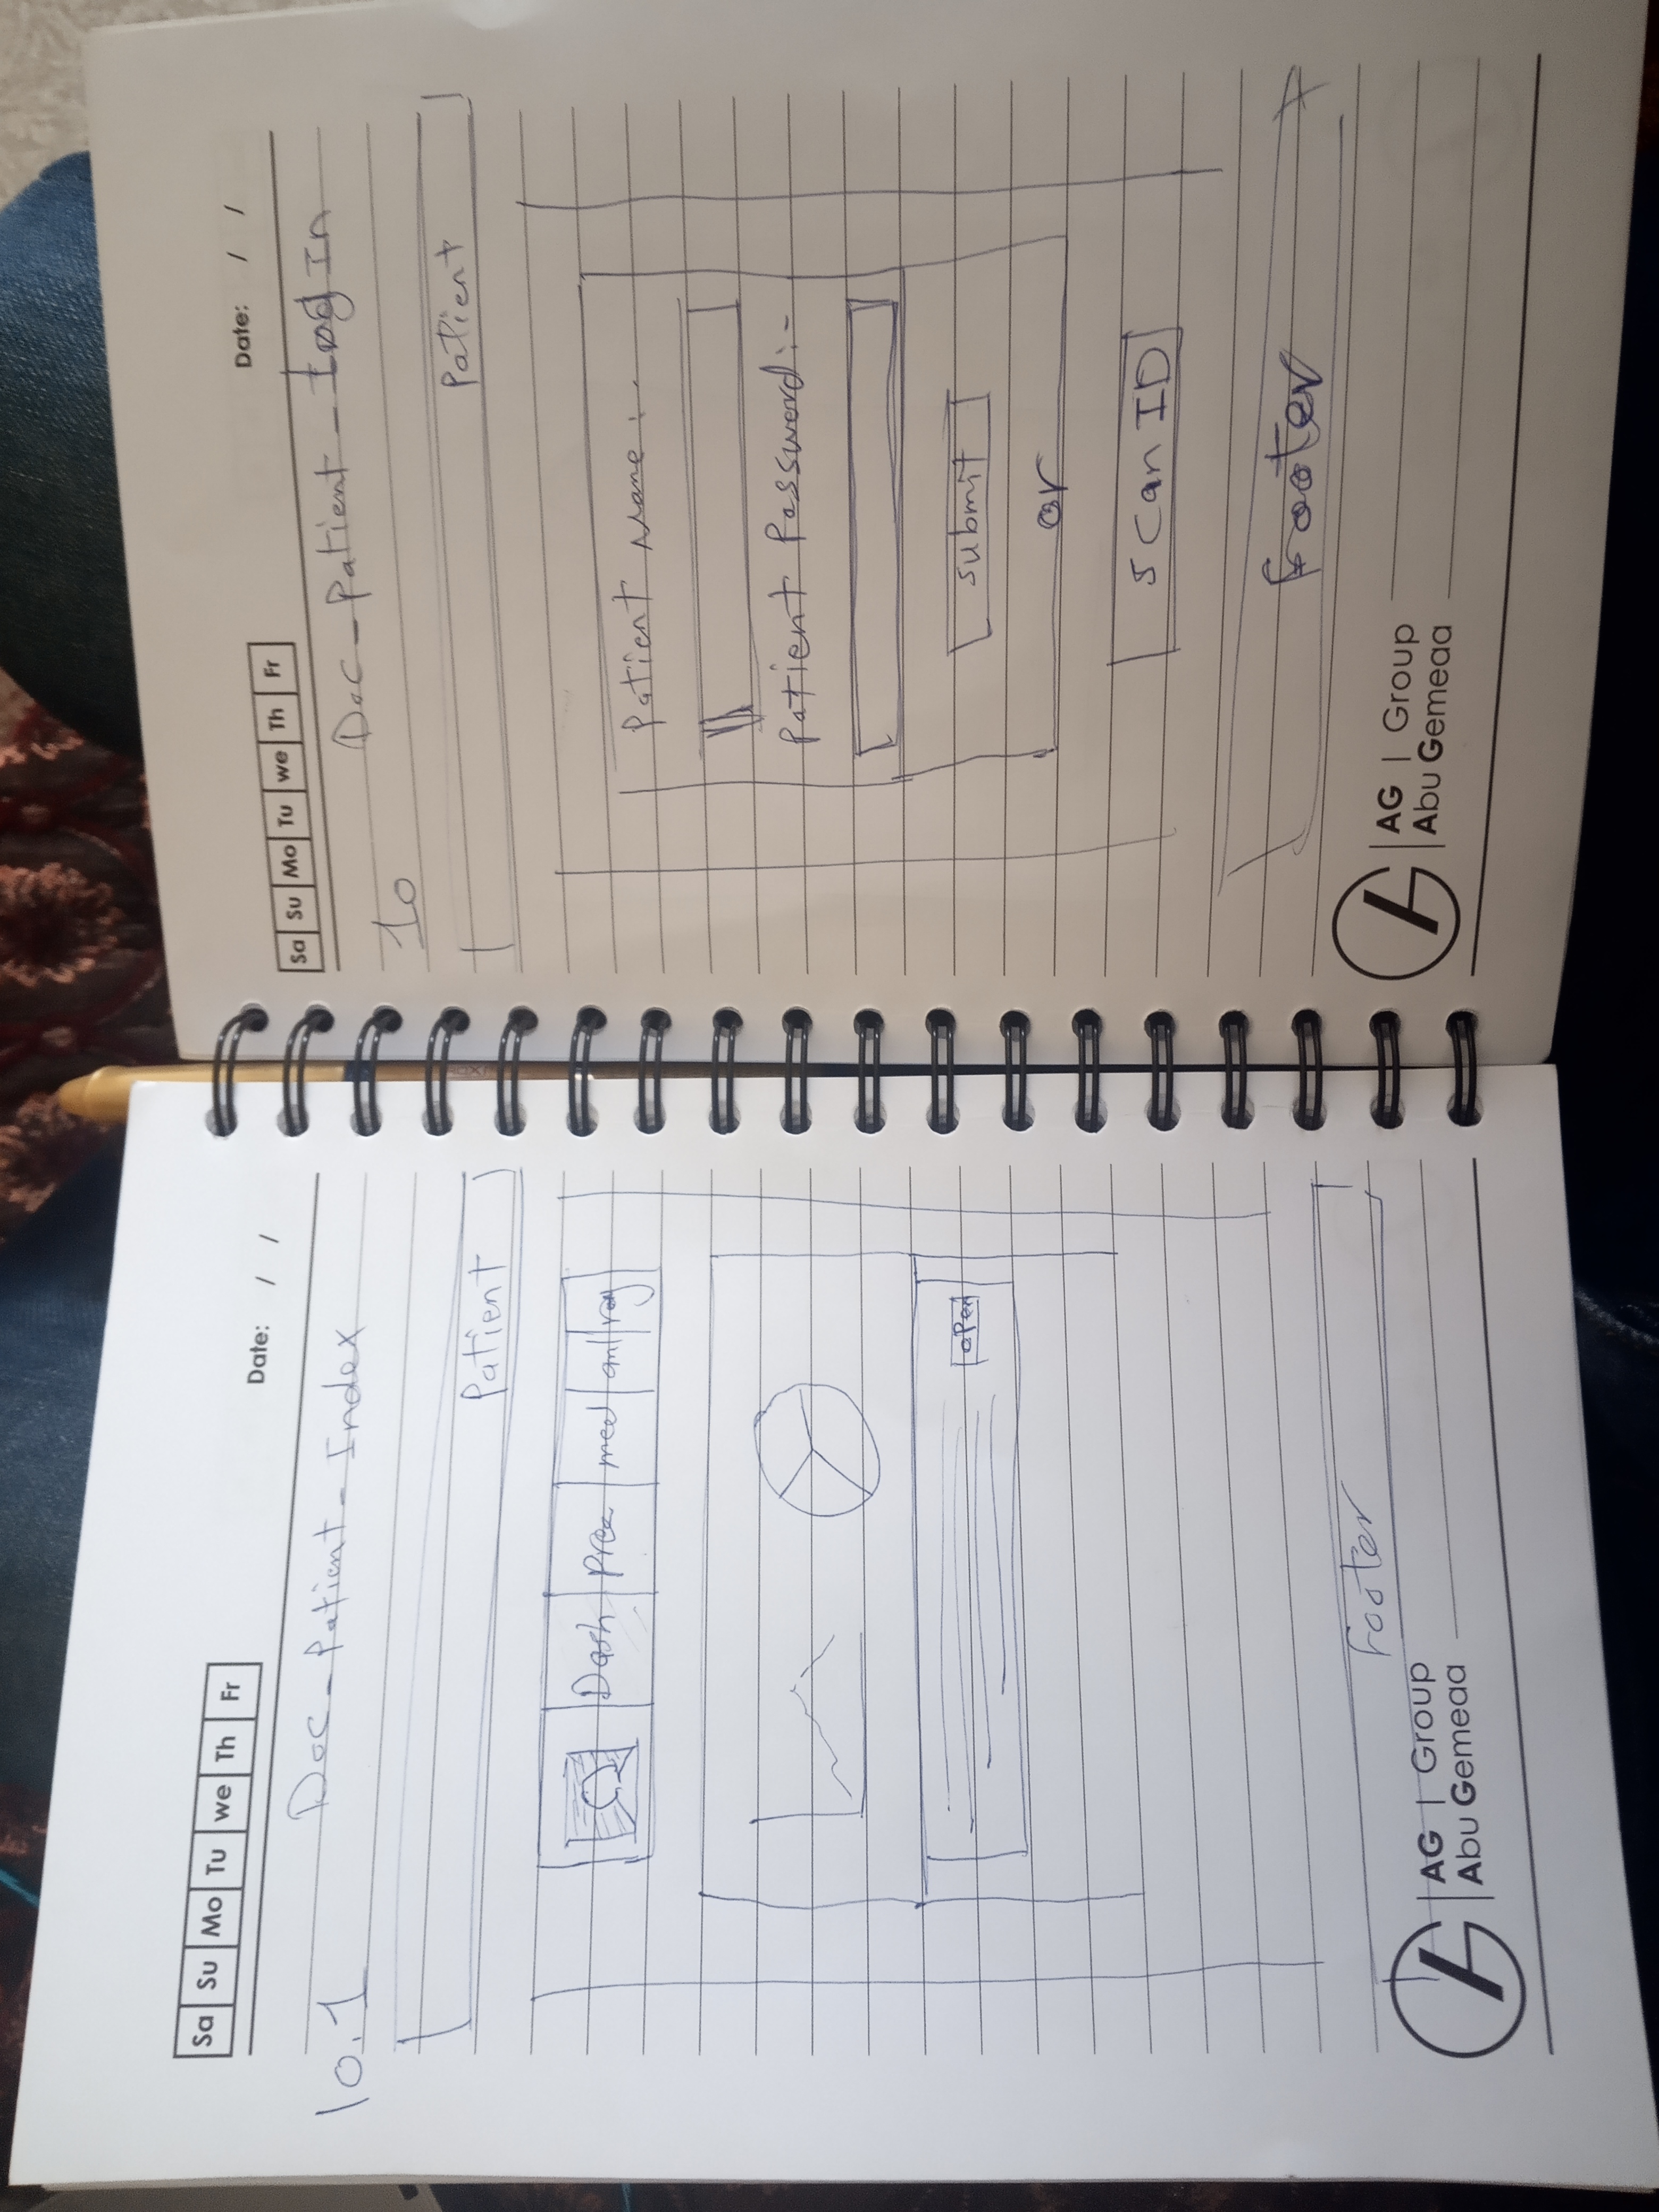 Sa Su Mo Tu we Th Fr
Date: / /
10.1 Doc-Patient-Index
Patient
Dash Prea med anl ray
open
Footer
AG | Group
Abu Gemeaa
Sa Su Mo Tu we Th Fr
Date: / /
10 Doc-Patient-Log In
Patient
Patient Name:
Patient Password:-
submit
or
Scan ID
Footer
AG | Group
Abu Gemeaa